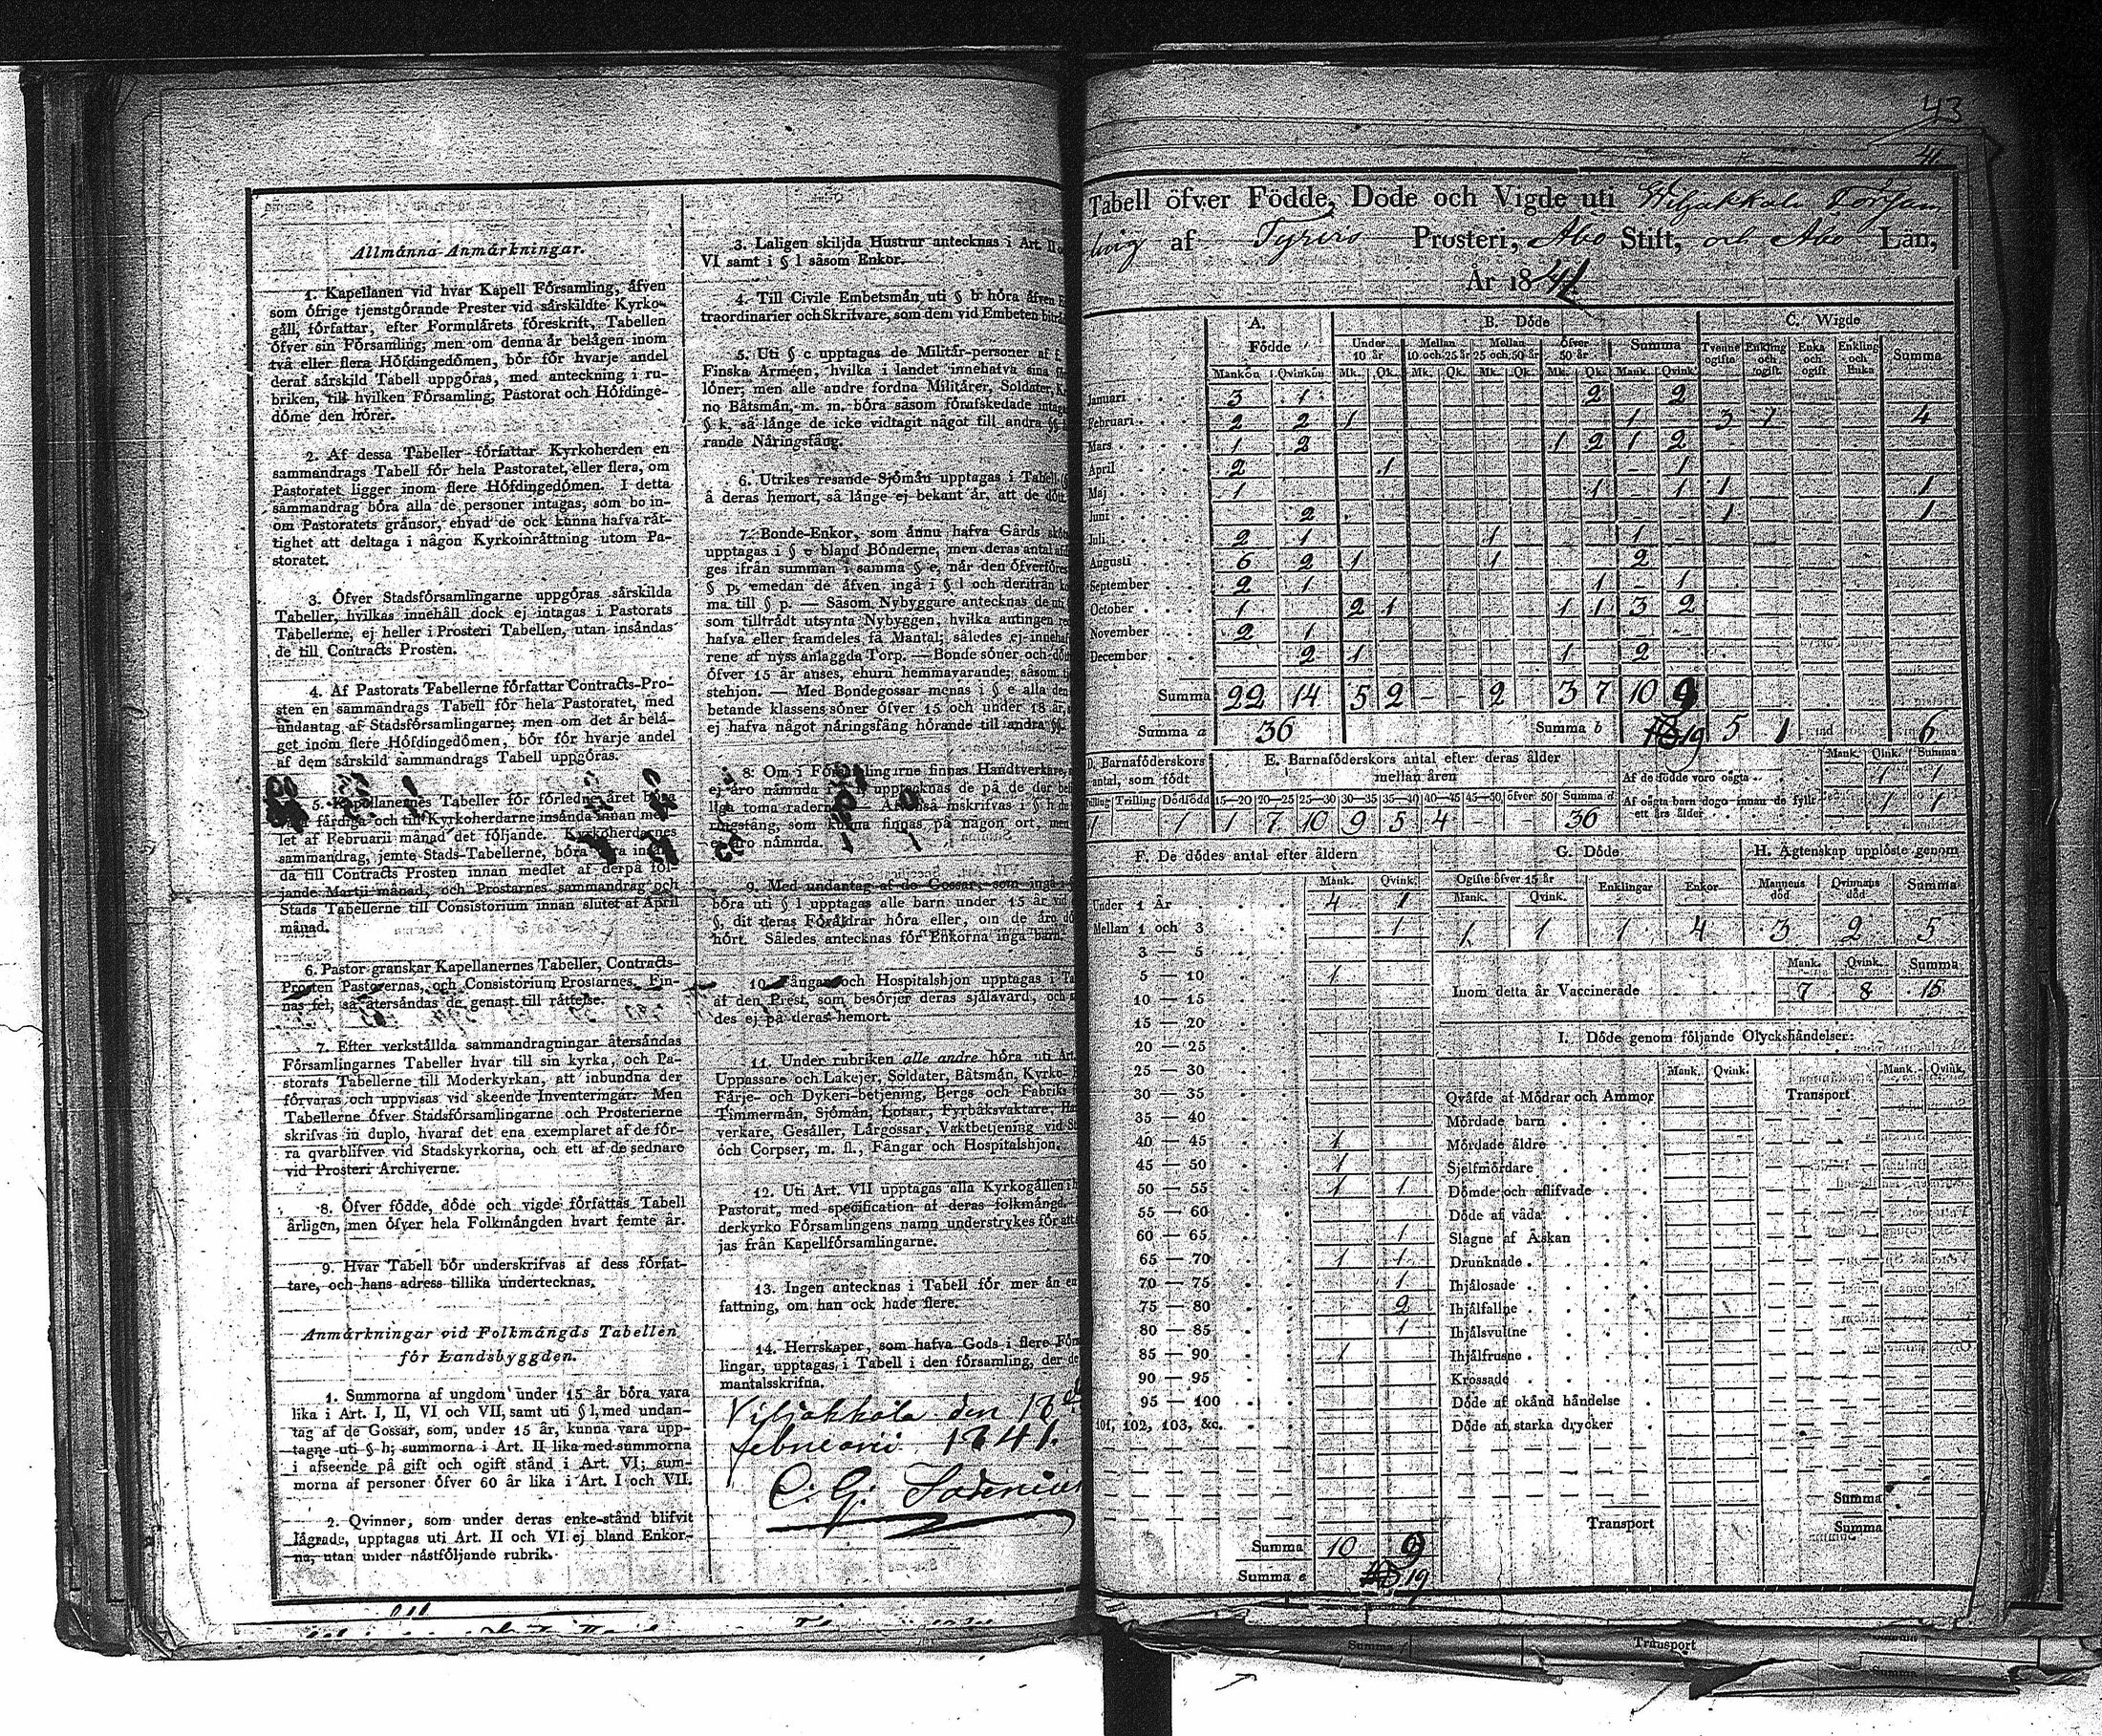 Allmänna Anmärkningar.
1. Kapellanen vid hvar Kapell Församling, äfven
som öfrige tjenstgörande Prester vid särskildte Kyrko-
gäll, författar, efter Formulärets föreskrift, Tabellen
öfver sin Församling; men om denna är belägen inom
två eller flera Höfdingedömen, bör för hvarje andel
deraf särskild Tabell uppgöras, med anteckning i ru-
briken, till hvilken Församling, Pastorat och Höfdinge-
döme den hörer.
2. Af dessa Tabeller författar Kyrkoherden en
sammandrags Tabell för hela Pastoratet, eller flera, om
Pastoratet ligger inom flere Höfdingedömen. I detta
sammandrag böra alla de personer intagas, som bo in-
om Pastoratets gränsor, ehvad de ock kunna hafva rät-
tighet att deltaga i någon Kyrkoinrättning utom Pa-
storatet.
3. Öfver Stadsförsamlingarne uppgöras särskilda
Tabeller, hvilkas innehåll dock ej intagas i Pastorats
Tabellerne, ej heller i Prosteri Tabellen, utan insändas
de till Contracts Prosten.
4. Af Pastorats Tabellerne författar Contracts-Pro-
sten en sammandrags Tabell för hela Pastoratet, med
undantag af Stadsförsamlingarne; men om det är belä-
get inom flere Höfdingedömen, bör för hvarje andel
af dem särskild sammandrags Tabell uppgöras.
5. Kapellanernes Tabeller för förledne året böra
färdiga och till Kyrkoherdarne insända innan med-
let af Februarii månad det följande. Kyrkoherdarnes
sammandrag, jemte Stads-Tabellerne, böra
da till Contracts Prosten innan medlet af derpå föl-
jande Martii månad, och Prostarnes sammandrag och
Stads Tabellerne till Consistorium innan slutet af April
månad.
6. Pastor granskar Kapellanernes Tabeller, Contracts-
Prosten Pastorernas, och Consistorium Prostarnes. Fin-
nas fel, så återsändas de genast till rättelse.
7. Efter verkställda sammandragningar återsändas
Församlingarnes Tabeller hvar till sin kyrka, och Pa-
storats Tabellerne till Moderkyrkan, att inbundna der
förvaras och uppvisas vid skeende Inventeringar. Men
Tabellerne öfver Stadsförsamlingarne och Prosterierne
skrifvas in duplo, hvaraf det ena exemplaret af de för-
ra qvarblifver vid Stadskyrkorna, och ett af de sednare
vid Prosteri Archiverne.
8. Öfver födde, döde och vigde författas Tabell
årligen, men öfver hela Folkmängden hvart femte år.
9. Hvar Tabell bör underskrifvas af dess förfat-
tare, och hans adress tillika undertecknas.
Anmärkningar vid Folkmängds Tabellen
för Landsbyggden.
1. Summorna af ungdom under 15 år böra vara
lika i Art. I, II, VI och VII, samt uti § l, med undan-
tag af de Gossar, som, under 15 år, kunna vara upp-
tagne uti § h; summorna i Art. II lika med summorna
i afseende på gift och ogift stånd i Art. VI; sum-
morna af personer öfver 60 år lika i Art. I och VII.
2. Qvinnor, som under deras enke-stånd blifvit
lägrade, upptagas uti Art. II och VI ej bland Enkor-
na, utan under nästföljande rubrik.
3. Laligen skiljda Hustrur antecknas i Art. II
VI samt i § l såsom Enkor.
4. Till Civile Embetsmän uti § b höra äfven
traordinarier och Skrifvare, som dem vid Embeten
5. Uti § c upptagas de Militär-personer af f.
Finska Arméen, hvilka i landet innehafva sina
löner; men alle andre fordna Militärer, Soldater,
no Båtsmän, m. m. böra såsom förafskedade
§ k, så länge de icke vidtagit något till andra §§
rande Näringsfång.
6. Utrikes resande Sjömän upptagas i Tabell
å deras hemort, så länge ej bekant är, att de
7. Bonde-Enkor, som ännu hafva Gårds
upptagas i § e bland Bönderne, men deras antal
ges ifrån summan i samma § e, när den öfverföres
§ p, emedan de äfven ingå i § l och derifrån
ma till § p. — Såsom Nybyggare antecknas de
som tillträdt utsynta Nybyggen, hvilka antingen
hafva eller framdeles få Mantal; således ej
rene af nyss anlaggda Torp. — Bonde söner och
öfver 15 år anses, ehuru hemmavarande, såsom
stehjon. — Med Bondegossar menas i § e alla den
betande klassens söner öfver 15 och under 18 år,
ej hafva något näringsfång hörande till andra §§.
8: Om i Församlingarne finnas Handtverkare,
ej äro nämnda upptecknas de på de der
liga toma raderne — Äfvenså inskrifvas i § h
ringsfång, som kunna finnas på någon ort, men
ej äro nämnda.
9. Med undantag af de Gossar, som ingå i
böra uti § l upptagas alle barn under 15 år vid
§, dit deras Föräldrar höra eller, om de äro
hört. Således antecknas för Enkorna inga barn.
10. Fångar och Hospitalshjon upptagas i
af den Prest, som besörjer deras själavård, och
des ej på deras hemort.
11. Under rubriken alle andre höra uti Art.
Uppassare och Lakejer, Soldater, Båtsmän, Kyrko-
Färje- och Dykeri-betjening, Bergs och Fabriks
Timmermän, Sjömän, Lotsar, Fyrbåksvaktare,
verkare, Gesäller, Lärgossar, Vaktbetjening vid
och Corpser, m. fl., Fångar och Hospitalshjon.
12. Uti Art. VII upptagas alla Kyrkogällen
Pastorat, med specification af deras folkmängd.
derkyrko Församlingens namn understrykes för att
jas från Kapellförsamlingarne.
13. Ingen antecknas i Tabell för mer än en
fattning, om han ock hade flere.
14. Herrskaper, som hafva Gods i flere För
lingar, upptagas i Tabell i den församling, der de
mantalsskrifna.
Viljakkala den 18
februarii 1841.
C. G.
43
Tabell öfver Födde, Döde och Vigde uti Wiljakkala Försam
ling af Tyrvis Prosteri, Åbo Stift, och Åbo Län,
År 1841
A. Födde B. Döde C. Wigde
Under 10 år Mellan 10 och 25 år Mellan 25 och 50 år Öfver 50 år Summa Tvenne ogifte Enkling och ogift Enka och ogift Enkling och Enka Summa
Mankön Qvinkön Mk. Qk. Mk. Qk. Mk. Qk. Mk. Qk. Mank. Qvink.
Januari 3 1 2 2
Februari 2 2 1 1 3 1 4
Mars 1 2 1 2 1 2
April 2 1 - 1
Maj 1 1 - 1 1 1
Juni 2 1 1
Juli 2 1 1 1
Augusti 6 2 1 1 2
September 2 1 1 - 1
October 1 2 1 1 1 3 2
November 2 1
December 2 1 1 2
Summa 22 14 5 2 - - 2 3 7 10 9
Summa a 36 Summa b 19 5 1 6
D. Barnaföderskors antal, som födt
Tvilling Trilling Dödfödd
1 1
E. Barnaföderskors antal efter deras ålder mellan åren
15—20 20—25 25—30 30—35 35—40 40—45 45—50 öfver 50 Summa d
1 7 10 9 5 4 - - 36
Mank. Qink. Summa
Af de födde voro oägta 1 1
Af oägta barn dogo innan de fyllt ett års ålder 1 1
F. De dödes antal efter åldern
Mank. Qvink.
Under 1 År 4 1
Mellan 1 och 3 1
3 — 5
5 — 10 1
10 — 15
15 — 20
20 — 25
25 — 30
30 — 35
35 — 40
40 — 45 1
45 — 50 1
50 — 55 1 1
55 — 60
60 — 65 1
65 — 70 1 1
70 — 75 1
75 — 80 2
80 — 85 1
85 — 90 1
90 — 95
95 — 100
101, 102, 103, &c.
Summa 10 9
Summa e 19
G. Döde
Ogifte öfver 15 år Enklingar Enkor
Mank. Qvink.
1 1 1 4
H. Ägtenskap upplöste genom
Mannens död Qvinnans död Summa
3 2 5
Mank. Qvink. Summa
Inom detta år Vaccinerade 7 8 15
I. Döde genom följande Olyckshändelser:
Mank. Qvink. Mank. Qvink.
Qväfde af Mödrar och Ammor Transport
Mördade barn
Mördade äldre
Sjelfmördare
Dömde och aflifvade
Döde af våda
Slagne af Åskan
Drunknade
Ihjälosade
Ihjälfallne
Ihjälsvultne
Ihjälfrusne
Krossade
Döde af okänd händelse
Döde af starka drycker
Summa
Transport Summa
Summa Transport Summa
Summa